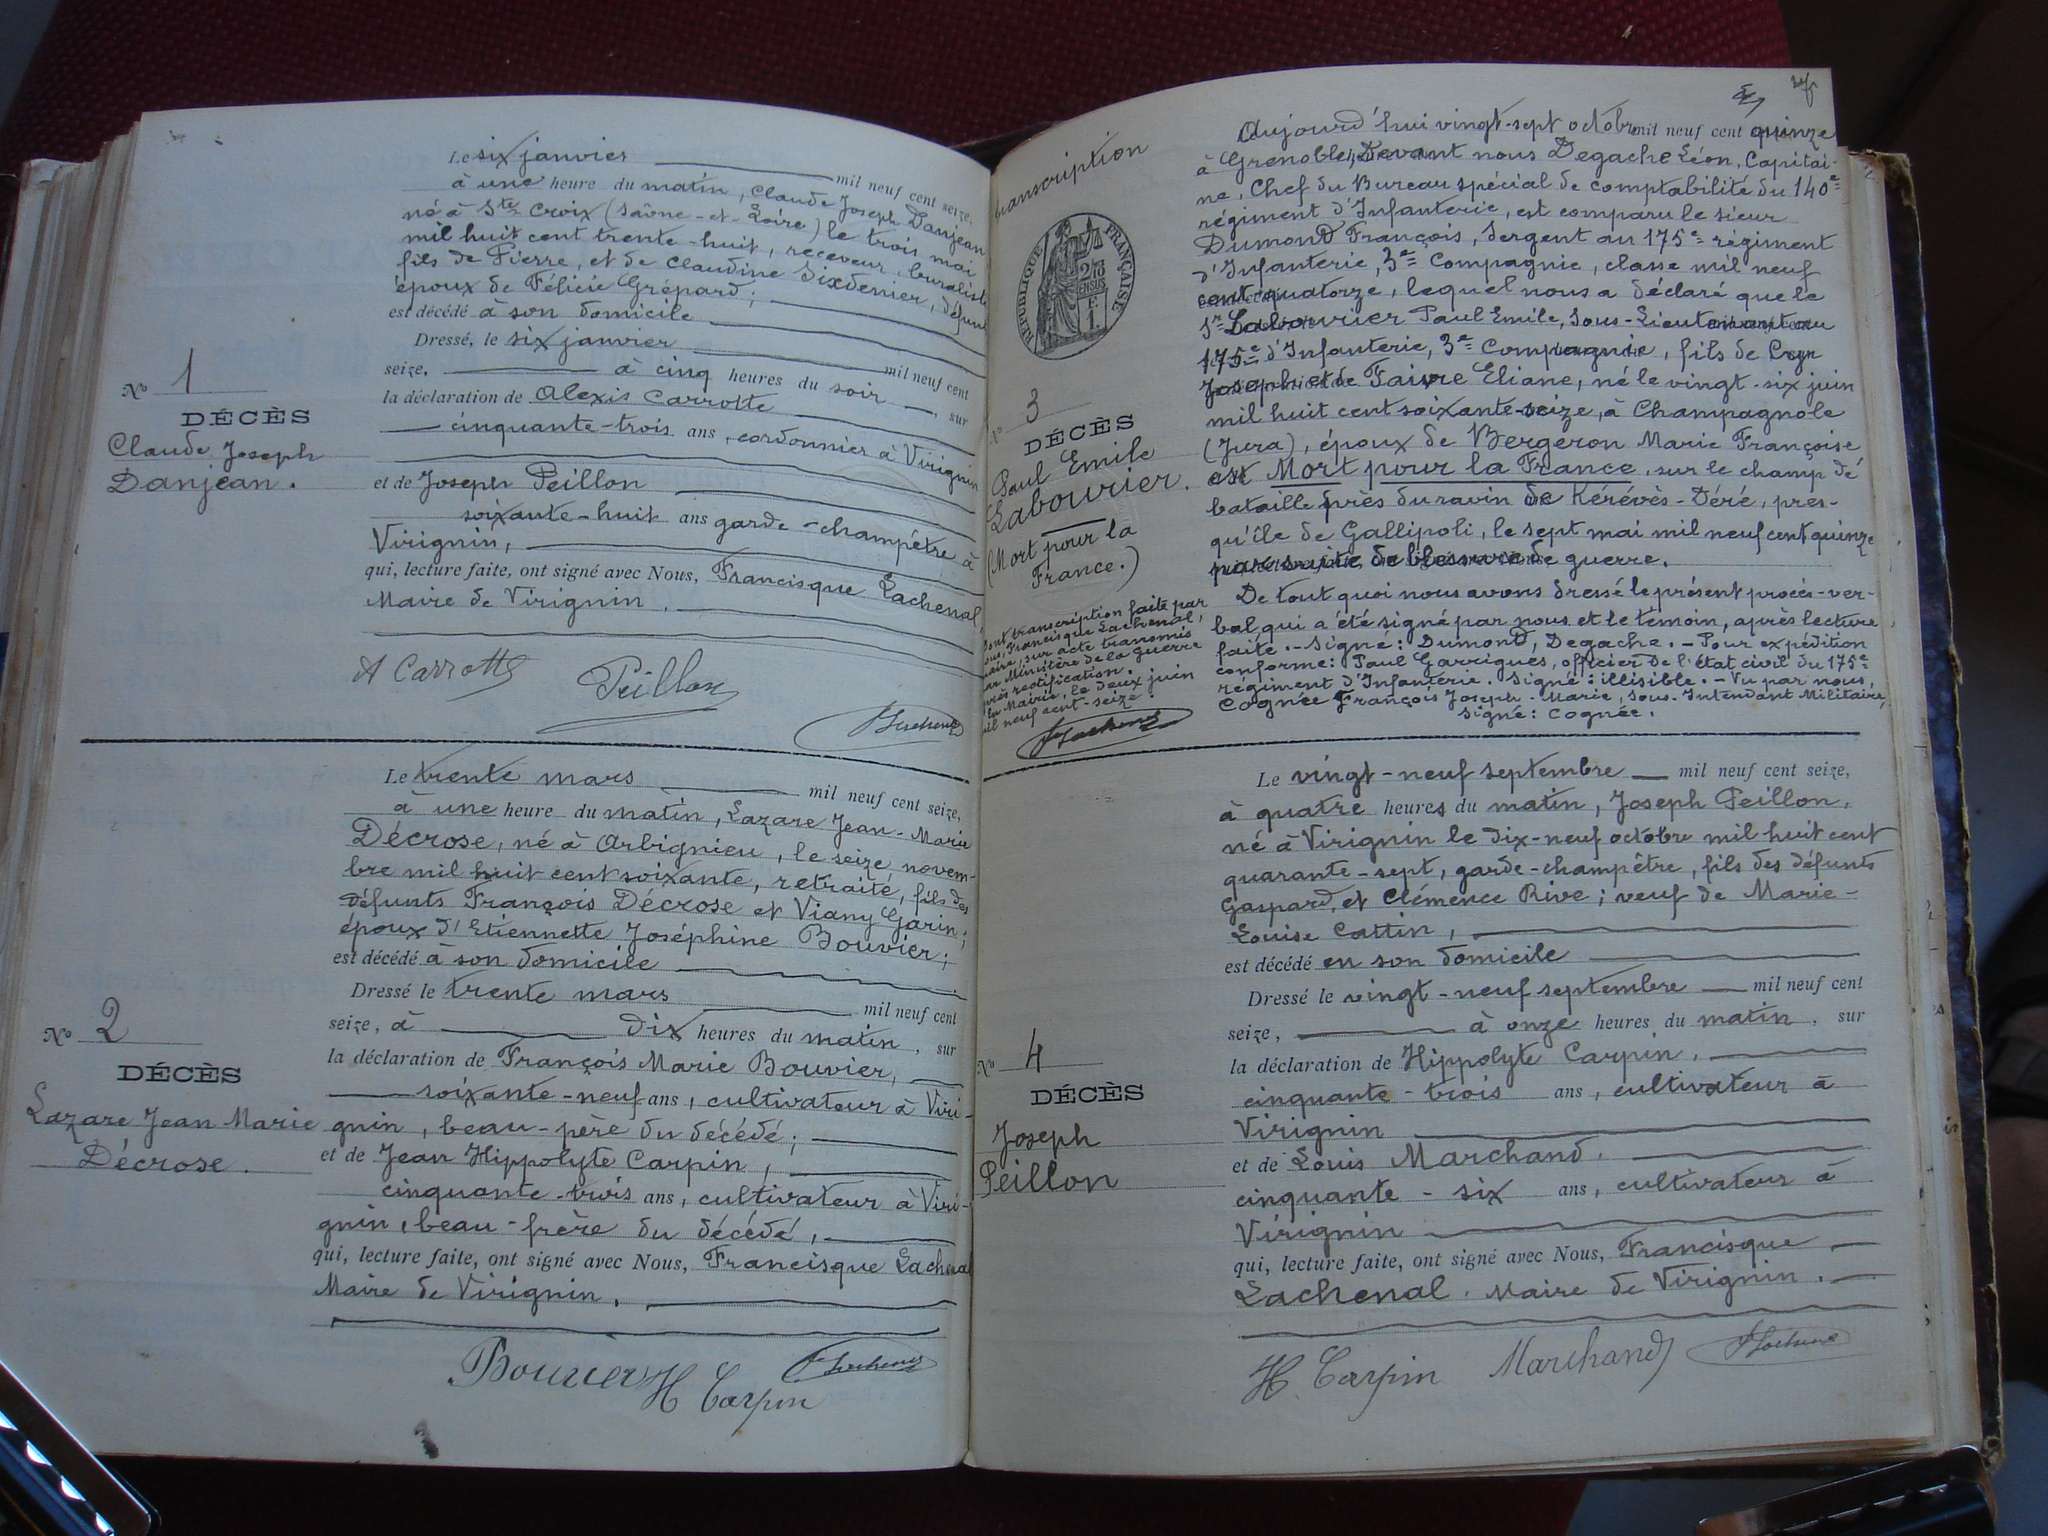 Le six janvier mil neuf cent seize,
à une heure du matin, Claude Joseph Danjean
né à Ste Croix (Saône-et-Loire) le trois mai
mil huit cent trente-huit, receveur buraliste
fils de Pierre, et de Claudine Sixdenier, défunts
époux de Félicie Grépard;
est décédé à son domicile
Dressé, le six janvier mil neuf cent
seize, à cinq heures du soir, sur
la déclaration de Alexis Carrotte
cinquante-trois ans, cordonnier à Virignin
et de Joseph Peillon
soixante-huit ans garde-champêtre à
Virignin,
qui, lecture faite, ont signé avec Nous, Francisque Lachenal,
Maire de Virignin.
N° 1
DÉCÈS
Claude Joseph
Danjean.
A Carrotte
Peillon
Le trente mars mil neuf cent seize,
à une heure du matin, Lazare Jean-Marie
Décrose, né à Arbignieu, le seize novem-
bre mil huit cent soixante, retraité, fils des
défunts François Décrose et Viany Garin;
époux d'Etiennette Joséphine Bouvier;
est décédé à son domicile
Dressé le trente mars mil neuf cent
seize, à dix heures du matin, sur
la déclaration de François Marie Bouvier,
soixante-neuf ans, cultivateur à Viri-
gnin, beau-père du décédé;
et de Jean Hippolyte Carpin,
cinquante-trois ans, cultivateur à Viri-
gnin, beau-frère du décédé,
qui, lecture faite, ont signé avec Nous, Francisque Lachenal
Maire de Virignin.
N° 2
DÉCÈS
Lazare Jean Marie
Décrose.
Bouvier H Carpin
transcription
RÉPUBLIQUE FRANÇAISE
N° 3
DÉCÈS
Paul Emile
Labourier.
(Mort pour la
France.)
transcription faite par
Francisque Lachenal,
maire, sur acte transmis
par Ministère de la guerre
après rectification.
En Mairie, le deux juin
mil neuf cent-seize.
Aujourd'hui vingt-sept octobre mil neuf cent quinze
à Grenoble, Devant nous Degache Léon, Capitai-
ne, Chef du Bureau spécial de comptabilité du 140e
régiment d'Infanterie, est comparu le sieur
Dumond François, Sergent au 175e régiment
d'Infanterie, 3e Compagnie, classe mil neuf
cent quatorze, lequel nous a déclaré que le
Sr Labourier Paul Emile, Sous-Lieutenant au
175e d'Infanterie, 3e Compagnie, fils de
Joseph et de Faivre Eliane, né le vingt-six juin
mil huit cent soixante-seize, à Champagnole
(Jura), époux de Bergeron Marie Françoise
est Mort pour la France, sur le champ de
bataille près du ravin de Kérévès-Déré, pres-
qu'île de Gallipoli, le sept mai mil neuf cent quinze
par suite de blessure de guerre.
De tout quoi nous avons dressé le présent procès-ver-
bal, qui a été signé par nous et le témoin, après lecture
faite.-Signé: Dumond, Degache.-Pour expédition
conforme: Paul Garrigues, officier de l'État civil du 175e
régiment d'Infanterie. Signé: illisible.-Vu par nous,
Cognée François Joseph-Marie, Sous-Intendant Militaire,
Signé: Cognée.
Le vingt-neuf septembre mil neuf cent seize,
à quatre heures du matin, Joseph Peillon,
né à Virignin le dix-neuf octobre mil huit cent
quarante-sept, garde-champêtre, fils des défunts
Gaspard, et Clémence Rive; veuf de Marie-
Louise Cattin,
est décédé en son domicile
Dressé le vingt-neuf septembre mil neuf cent
seize, à onze heures du matin, sur
la déclaration de Hippolyte Carpin,
cinquante-trois ans, cultivateur à
Virignin
et de Louis Marchand.
cinquante-six ans, cultivateur à
Virignin
qui, lecture faite, ont signé avec Nous, Francisque
Lachenal. Maire de Virignin.
N° 4
DÉCÈS
Joseph
Peillon
H. Carpin Marchand